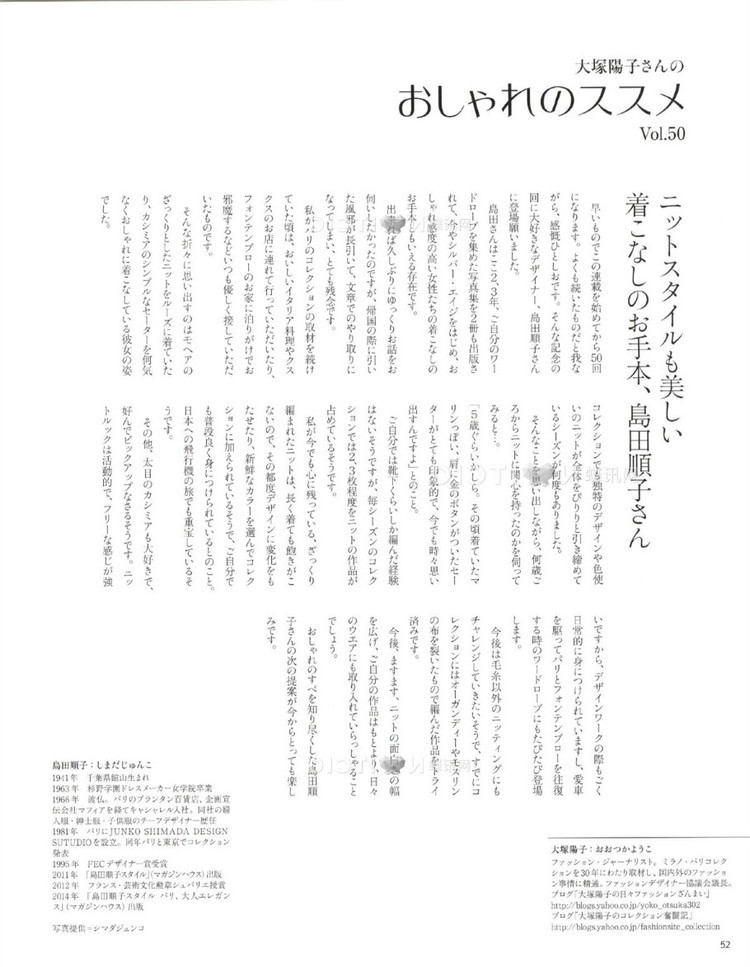 大塚陽子さんの
おしゃれのススメ
Vol.50
ニットスタイルも美しい
着こなしのお手本、島田順子さん
早いものでこの連載を始めてから50回
になります。よくも続いたものだと我な
がら、感慨ひとしおです。そんな記念の
回に大好きなデザイナー、島田順子さん
に登場願いました。
島田さんはここ2、3年、ご自分のワー
ドローブを集めた写真集を2冊も出版さ
れて、今やシルバー・エイジをはじめ、お
しゃれ感度の高い女性たちの着こなしの
お手本ともいえる存在です。
出来れば久しぶりにゆっくりお話をお
伺いしたかったのですが、帰国の際に引い
た風邪が長引いて、文章でのやり取りに
なってしまい、とても残念です。
私がパリのコレクションの取材を続け
ていた頃は、おいしいイタリア料理やクス
クスのお店に連れて行っていただいたり、
フォンテンブローのお家に泊りがけでお
邪魔するなどいつも優しく接していただ
いたものです。
そんな折々に思い出すのはモヘアの
ざっくりとしたニットをルーズに着ていた
り、カシミアのシンプルなセーターを何気
なくおしゃれに着こなしている彼女の姿
でした。
コレクションでも独特のデザインや色使
いのニットが全体をぴりりと引き締めて
いるシーズンが何度もありました。
そんなことを思い出しながら、何歳ご
ろからニットに関心を持ったのかを伺って
みると…。
「5歳ぐらいかしら。その頃着ていたマ
リンっぽい、肩に金のボタンがついたセー
ターがとても印象的で、今でも時々思い
出すんですよ」とのこと。
ご自分では靴下くらいしか編んだ経験
はないそうですが、毎シーズンのコレク
ションでは2、3枚程度をニットの作品が
占めているそうです。
私が今でも心に残っている、ざっくり
編まれたニットは、長く着ても飽きがこ
ないので、その都度デザインに変化をも
たせたり、新鮮なカラーを選んでコレク
ションに加えられているそうで、ご自分で
も普段良く身につけられているとのこと。
日本への飛行機の旅でも重宝しているそ
うです。
その他、太目のカシミアも大好きで、
好んでピックアップなさるそうです。ニッ
トルックは活動的で、フリーな感じが強
いですから、デザインワークの際もごく
日常的に身につけられていますし、愛車
を駆ってパリとフォンテンブローを往復
する時のワードローブにもたびたび登場
します。
今後は毛糸以外のニッティングにも
チャレンジしていきたいそうで、すでにコ
レクションにはオーガンディーやモスリン
の布を裂いたもので編んだ作品をトライ
済みです。
今後、ますます、ニットの面白さの幅
を広げ、ご自分の作品はもとより、日々
のウエアにも取り入れていらっしゃること
でしょう。
おしゃれのすべを知り尽くした島田順
子さんの次の提案が今からとっても楽し
みです。
島田順子：しまだじゅんこ
1941年　千葉県館山生まれ
1963年　杉野学園ドレスメーカー女学院卒業
1966年　渡仏。パリのプランタン百貨店、企画宣
伝会社マフィアを経てキャシャレル入社。同社の婦
人服・紳士服・子供服のチーフデザイナー歴任
1981年　パリにJUNKO SHIMADA DESIGN
SUTUDIOを設立。同年パリと東京でコレクション
発表
1995年　FECデザイナー賞受賞
2011年　「島田順子スタイル」（マガジンハウス）出版
2012年　フランス・芸術文化勲章シュバリエ授賞
2014年　「島田順子スタイル パリ、大人エレガン
ス」（マガジンハウス）出版
写真提供＝シマダジュンコ
大塚陽子：おおつかようこ
ファッション・ジャーナリスト。ミラノ・パリコレク
ションを30年にわたり取材し、国内外のファッショ
ン事情に精通。ファッションデザイナー協議会議長。
ブログ「大塚陽子の日々ファッションざんまい」
http://blogs.yahoo.co.jp/yoko_otsuka302
ブログ「大塚陽子のコレクション奮闘記」
http://blogs.yahoo.co.jp/fashionsite_collection
52